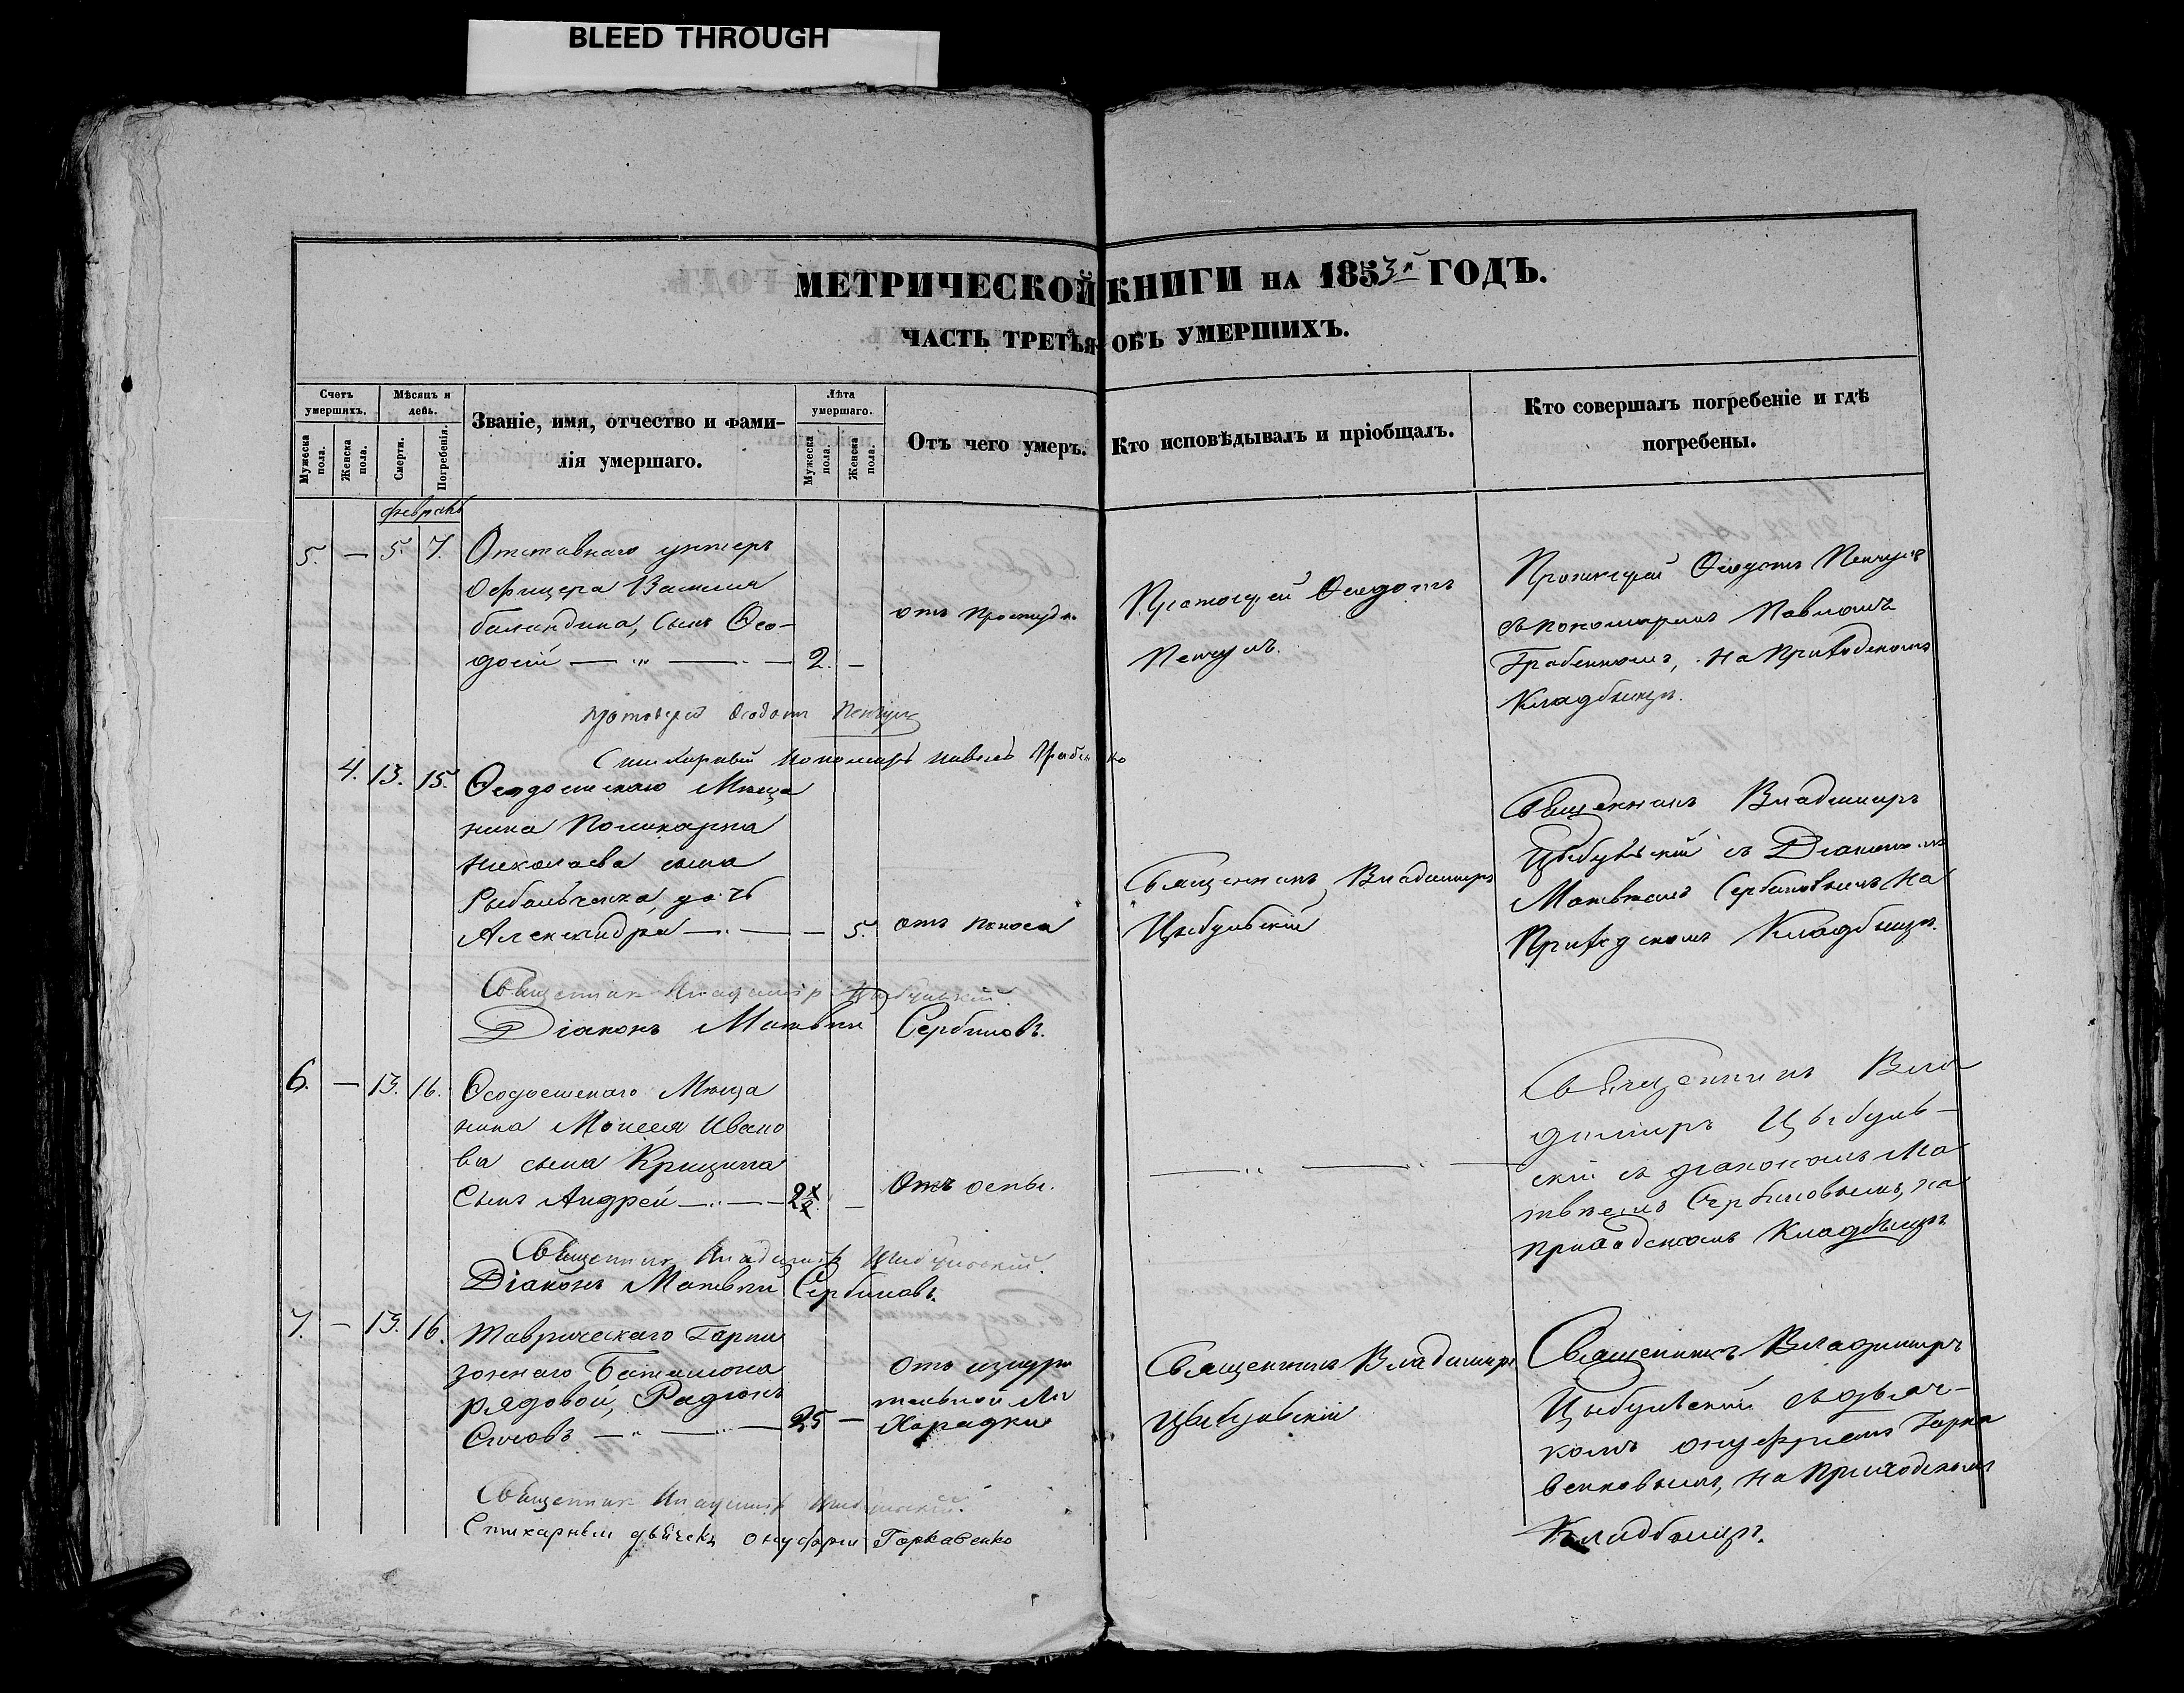 BLEED THROUGH
МЕТРИЧЕСКОЙ КНИГИ НА 1853й ГОДЪ.
ЧАСТЬ ТРЕТЬЯ ОБЪ УМЕРШИХЪ.
Счетъ умершихъ.
Мужеска пола.
Женска пола.
Мѣсяцъ и день.
Смерти.
Погребенія.
Званіе, имя, отчество и фами-
лія умершаго.
Лѣта умершаго.
Мужеска пола.
Женска пола.
Отъ чего умеръ.
Кто исповѣдывалъ и пріобщалъ.
Кто совершалъ погребеніе и гдѣ
погребены.
февраль
5. — 5. 7. Отставнаго унтеръ
Офицера Василия
баландина, Сынъ Ѳео-
досій — „ — 2. —
отъ простуды
Протоіерей Ѳеодотъ
Пенчулъ.
Протоіерей Ѳеодотъ Пенчулъ
съ пономаремъ Павломъ
Грабенкомъ, на Приходскомъ
Кладбищѣ.
протоіерей Ѳеодотъ Пенчулъ
Стихарный пономарь павелъ Грабенко
4. 13. 15. Ѳеодосійскаго Мѣща
нина Поликарпа
Николаева сына
Рыбальченка, дочь
Александра — — 5. отъ поноса
Священникъ Владимиръ
Цыбульскій
Священникъ Владимиръ
Цыбульскій съ Діакономъ
Матвѣемъ Сербиновымъ на
Приходскомъ Кладбищѣ.
Священник Владимір Цыбульскій.
Діаконъ Матвѣй Сербиновъ.
6. — 13. 16. Ѳеодосійскаго Мѣща
нина Моисея Ивано
ва сына Крицина
Сынъ Андрей — — 2 — Отъ оспы.
Священникъ Вла
димиръ Цыбуль-
скій съ діакономъ Ма
твѣемъ Сербиновымъ, на
приходскомъ Кладбищѣ
Священник Владимір Цыбульскій.
Діаконъ Матвѣй Сербиновъ.
7. — 13. 16. Таврическаго Гарни
зоннаго Баталіона
рядовой, Радіонъ
— „ — 25 —
Отъ изнури
тельной Ли
Хорадки
Священникъ Владимиръ
Цыбульскій
Священникъ Владимиръ
Цыбульскій съ дьяч-
комъ онуфріемъ Горка
венковымъ, на Приходскомъ
Кладбищѣ.
Священник Владимір Цыбульскій.
Стихарный дьячекъ онуфрій Горкавенко